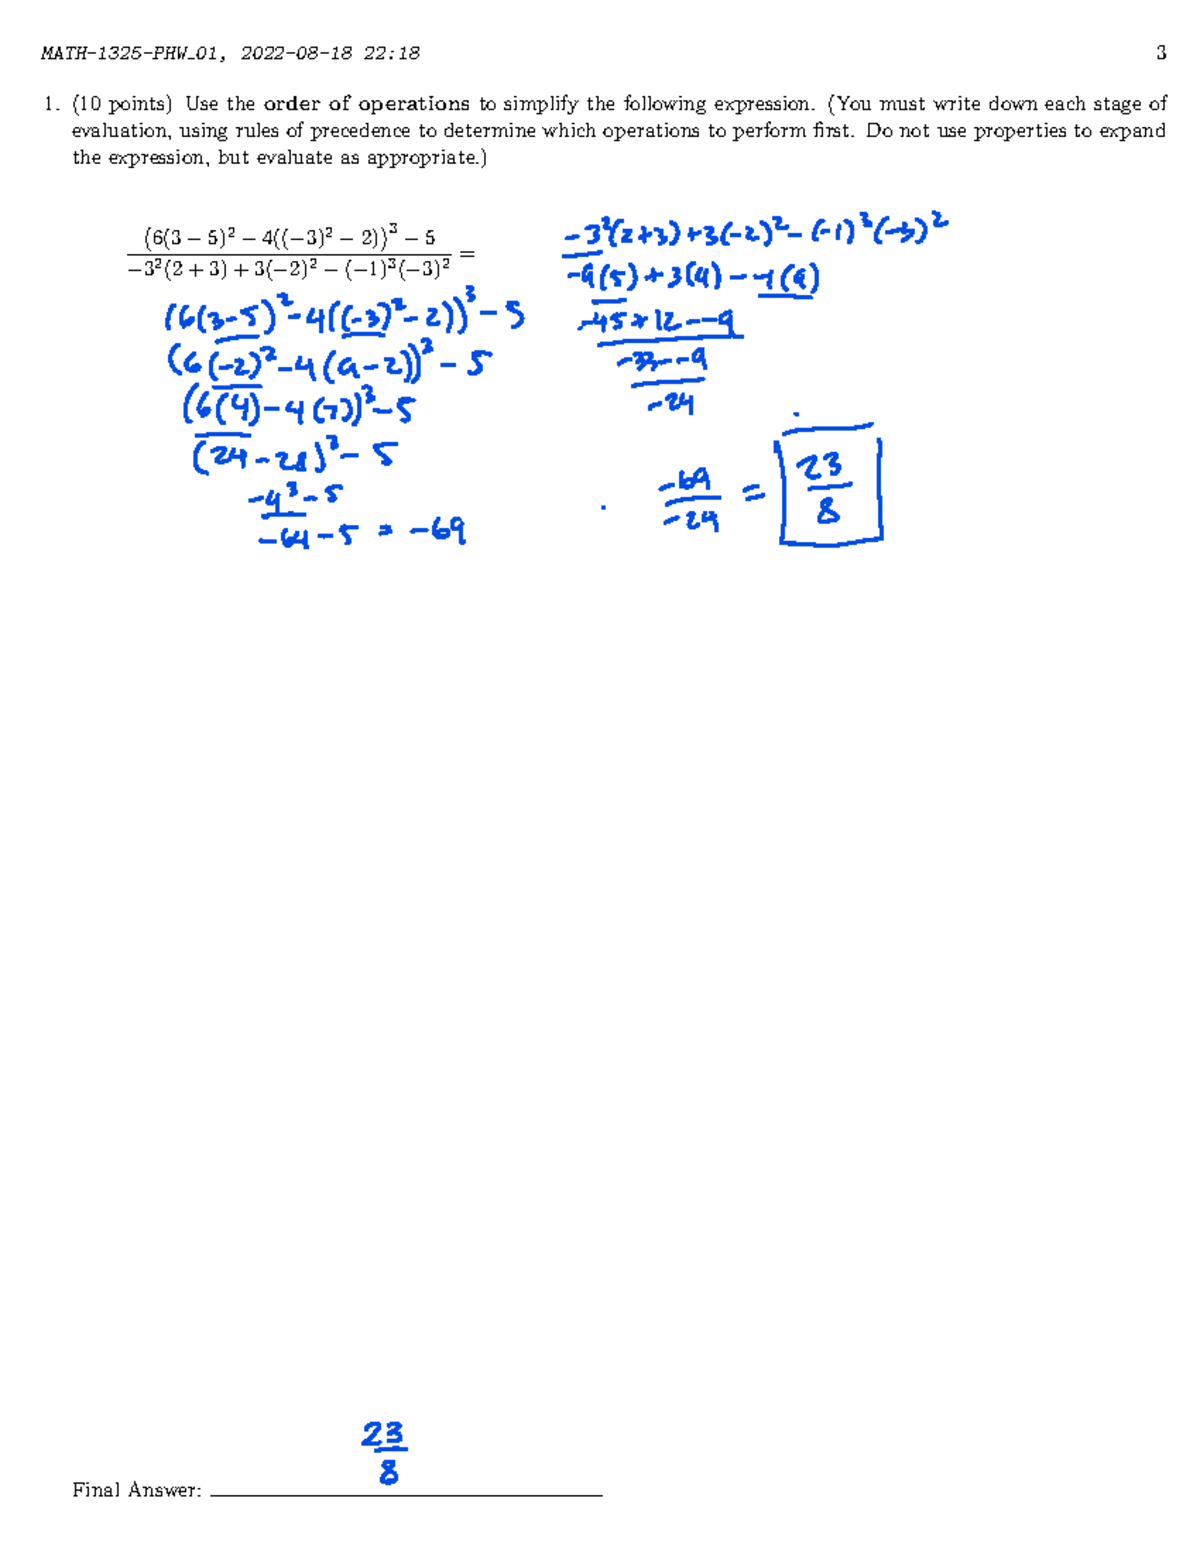 MATH-1325-PHW_01, 2022-08-18 22:18 3
1. (10 points) Use the order of operations to simplify the following expression. (You must write down each stage of
evaluation, using rules of precedence to determine which operations to perform first. Do not use properties to expand
the expression, but evaluate as appropriate.)
(6(3 − 5)² − 4((−3)² − 2))³ − 5
−3²(2 + 3) + 3(−2)² − (−1)³(−3)² =
(6(3-5)²-4((-3)²-2))³-5
(6(-2)²-4(9-2))³-5
(6(4)-4(7))³-5
(24-28)³-5
-4³-5
-64-5 = -69
-3²(2+3)+3(-2)²-(-1)³(-3)²
-9(5)+3(4)--1(9)
-45+12--9
-33--9
-24
-69/-24 = 23/8
23/8
Final Answer: